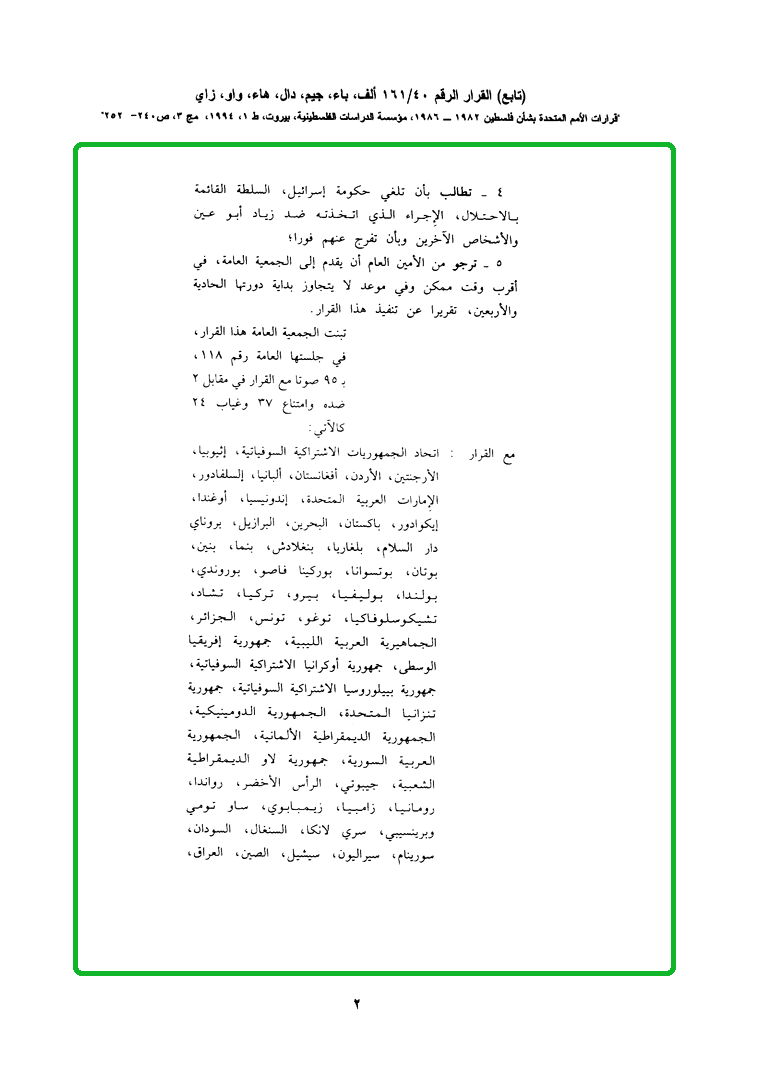 (تابع) القرار الرقم ١٦١/٤٠ ألف، باء، جيم، دال، هاء، واو، زاي
"قرارات الأمم المتحدة بشأن فلسطين ١٩٨٢ ــ ١٩٨٦، مؤسسة الدراسات الفلسطينية، بيروت، ط ١، ١٩٩٤، مج ٣، ص٢٤٠- ٢٥٢"
٤ ـ تطالب بأن تلغي حكومة إسرائيل، السلطة القائمة
بالاحتلال، الإجراء الذي اتخذته ضد زياد أبو عين
والأشخاص الآخرين وبأن تفرج عنهم فورا؛
٥ ـ ترجو من الأمين العام أن يقدم إلى الجمعية العامة، في
أقرب وقت ممكن وفي موعد لا يتجاوز بداية دورتها الحادية
والأربعين، تقريرا عن تنفيذ هذا القرار.
تبنت الجمعية العامة هذا القرار،
في جلستها العامة رقم ١١٨،
بـ ٩٥ صوتا مع القرار في مقابل ٢
ضده وامتناع ٣٧ وغياب ٢٤
كالآتي:
مع القرار : اتحاد الجمهوريات الاشتراكية السوفياتية، إثيوبيا،
الأرجنتين، الأردن، أفغانستان، ألبانيا، إلسلفادور،
الإمارات العربية المتحدة، إندونيسيا، أوغندا،
إيكوادور، باكستان، البحرين، البرازيل، بروناي
دار السلام، بلغاريا، بنغلادش، بنما، بنين،
بوتان، بوتسوانا، بوركينا فاصو، بوروندي،
بولندا، بوليفيا، بيرو، تركيا، تشاد،
تشيكوسلوفاكيا، توغو، تونس، الجزائر،
الجماهيرية العربية الليبية، جمهورية إفريقيا
الوسطى، جمهورية أوكرانيا الاشتراكية السوفياتية،
جمهورية بييلوروسيا الاشتراكية السوفياتية، جمهورية
تنزانيا المتحدة، الجمهورية الدومينيكية،
الجمهورية الديمقراطية الألمانية، الجمهورية
العربية السورية، جمهورية لاو الديمقراطية
الشعبية، جيبوتي، الرأس الأخضر، رواندا،
رومانيا، زامبيا، زيمبابوي، ساو تومي
وبرينسيبي، سري لانكا، السنغال، السودان،
سورينام، سيراليون، سيشيل، الصين، العراق،
٢